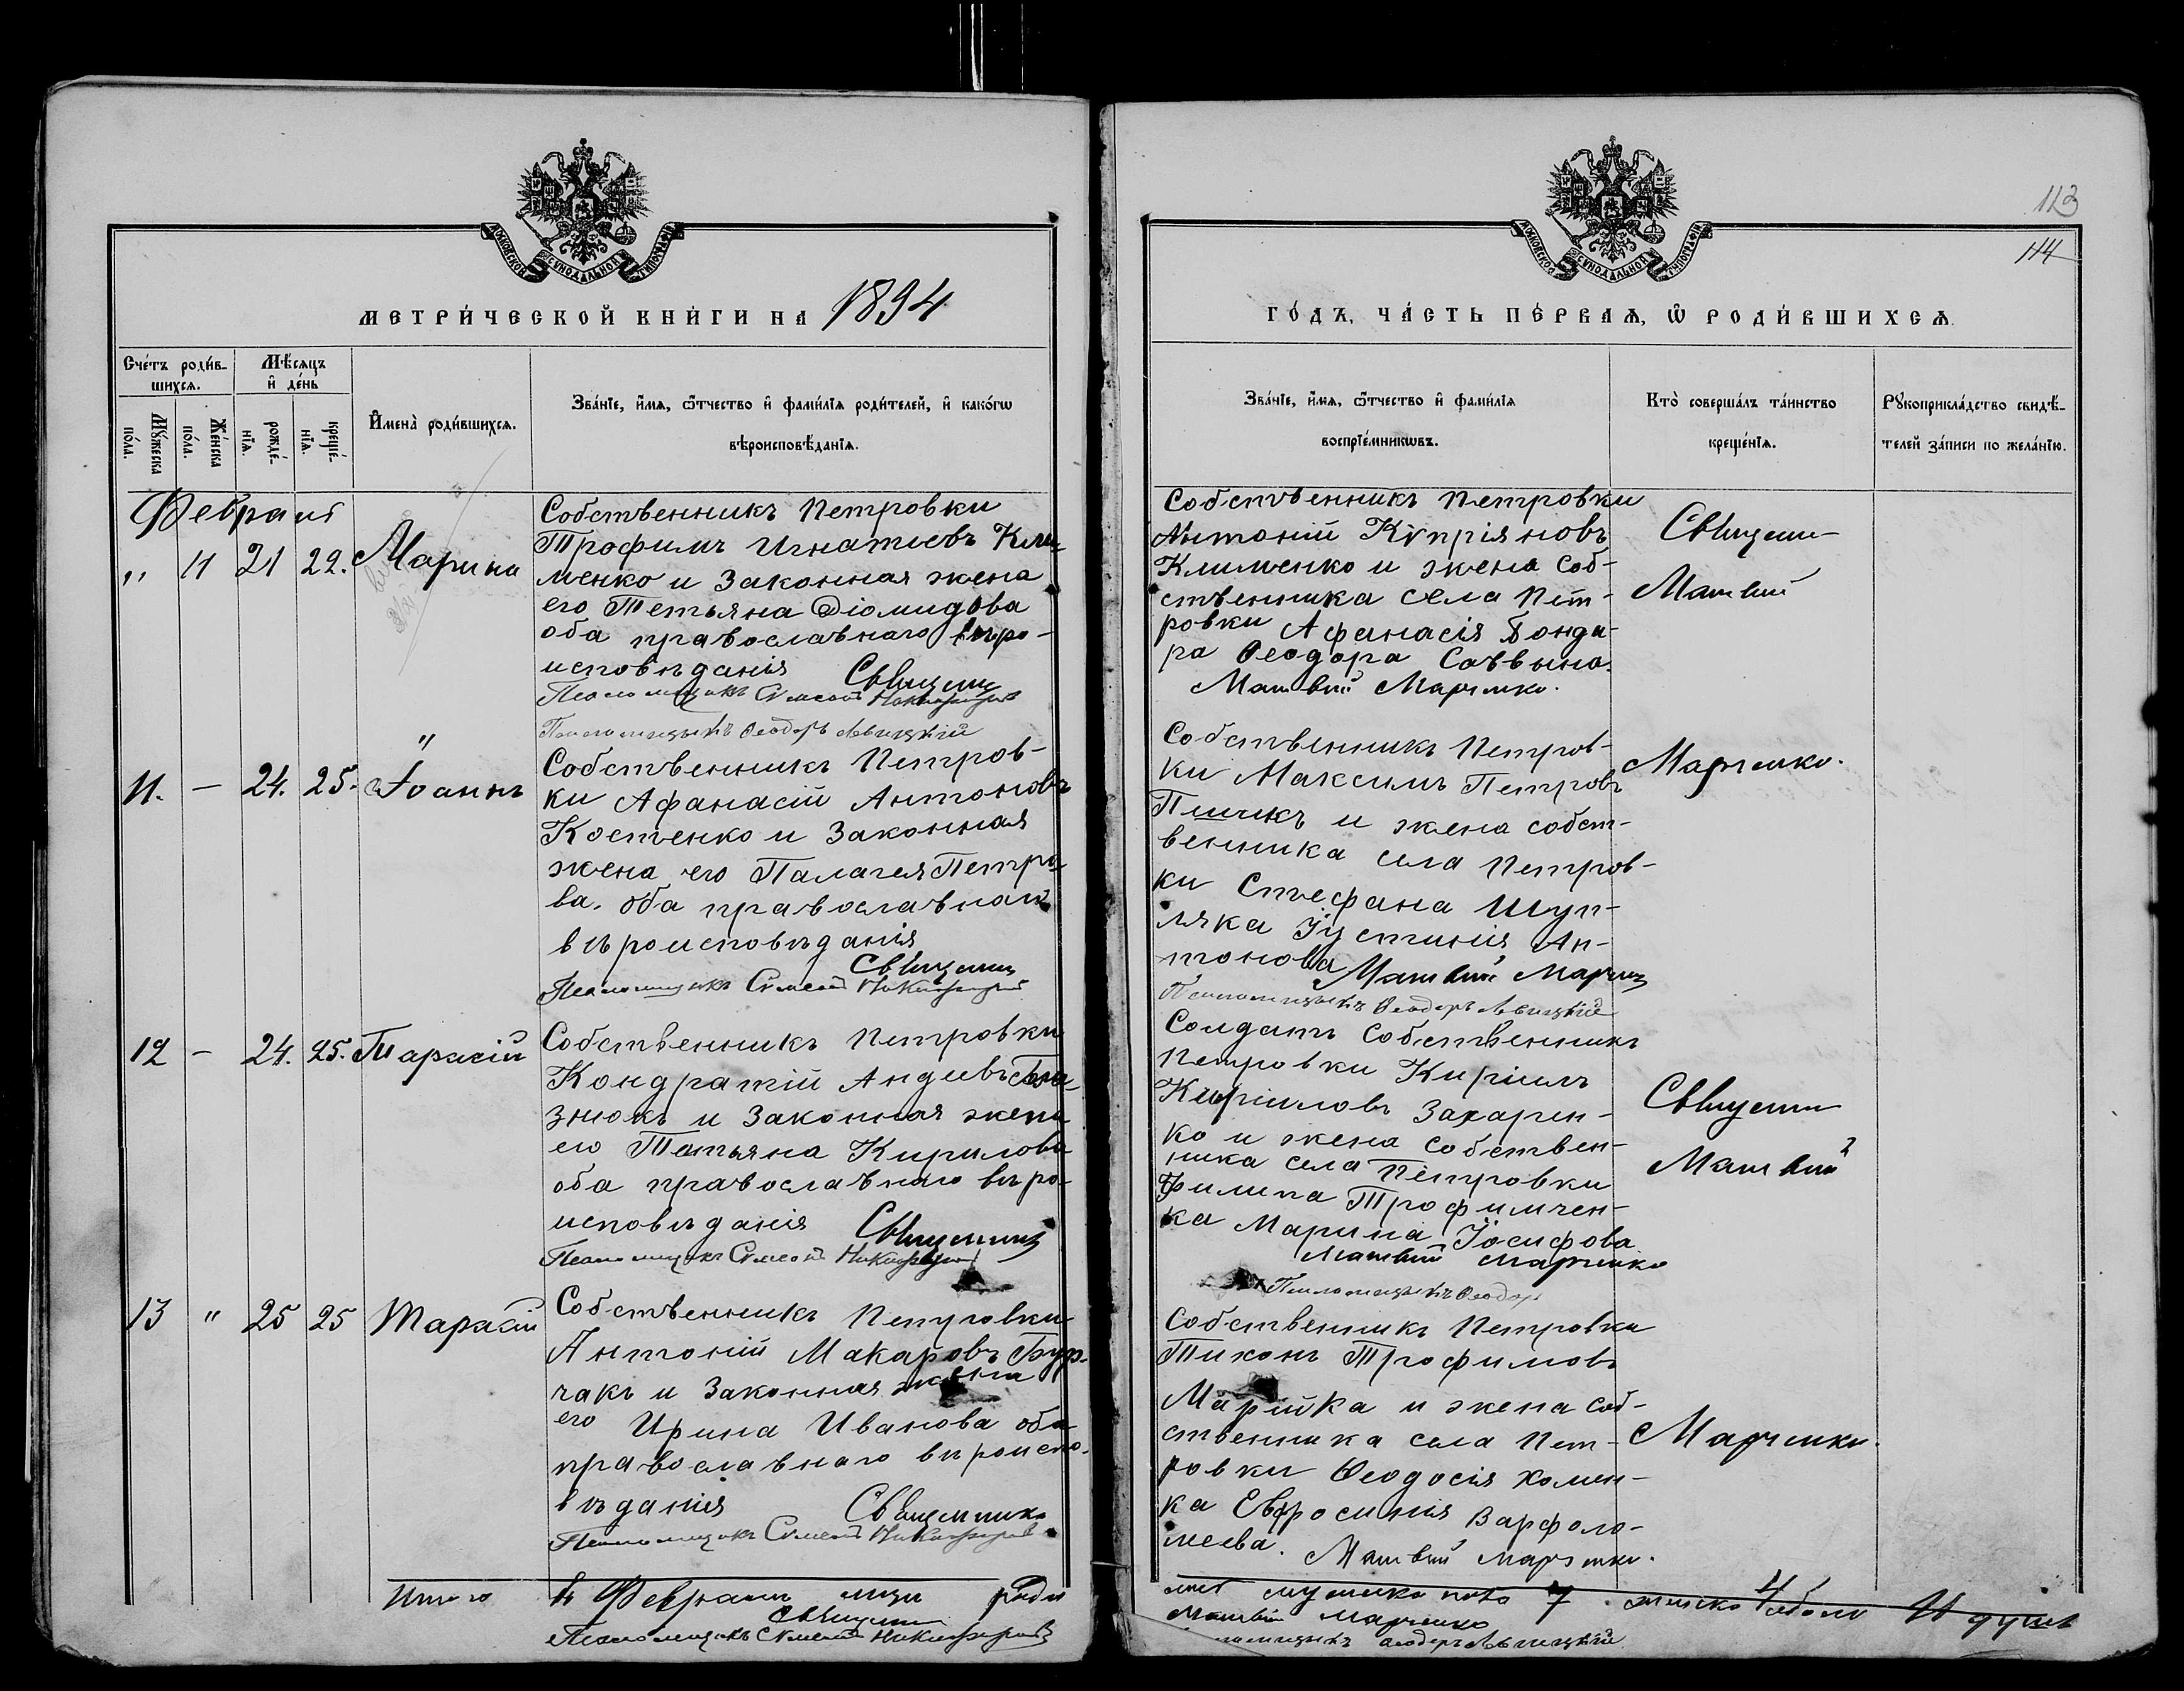 113
114
МЕТРИ́ЧЕСКОЙ КНИ́ГИ НА 1894
ГО́ДЪ, ЧА́СТЬ ПЕ́РВАѦ, Ѡ҆ РОДИ́ВШИХСѦ.
Сче́тъ роди́в-
шихсѧ.
Мꙋ́жеска
по́ла.
Же́нска
по́ла.
Мѣ́сѧцъ
и҆ де́нь
рожде́-
нїѧ.
креще́-
нїѧ.
И҆мена̀ роди́вшихсѧ.
Зва́нїе, и҆́мѧ, ѻ҆́тчество и҆ фами́лїѧ роди́телей, и҆ како́гѡ
вѣроисповѣ́данїѧ.
Зва́нїе, и҆́мѧ, ѻ҆́тчество и҆ фами́лїѧ
воспрїе́мникѡвъ.
Кто̀ соверша́лъ та́инство
креще́нїѧ.
Рꙋкоприкла́дство свидѣ́-
телей за́писи по жела́нїю.
Февраля
" 11 21 22. Марина
Собственникъ Петровки
Трофимъ Игнатиевъ Кли-
менко и Законная жена
его Тетьяна Діомидова
оба православнаго вѣро-
исповѣданія Священни
Псаломщикъ Симеонъ Никифоровъ
Псаломщикъ Ѳеодоръ Левицкій
Собственникъ Петровки
Антоній Кѵпріяновъ
Клименко и жена соб-
ственника села Пет-
ровки Афанасія Бонда-
ра Ѳеодора Саввина.
Матвій Марченко.
Священн-
Матвій
11. — 24. 25. Іоаннъ
Собственникъ Петров-
ки Афанасій Антоновъ
Костенко и Законная
жена его Палагея Петро-
ва. оба православнаго
вѣроисповѣданія
Священни
Псаломщикъ Симеонъ Никифоровъ
Собственникъ Петров-
ки Максимъ Петровъ
и жена собст-
венника села Петров-
ки Стефана Шуп-
ляка Іустинія Ан-
тонова Матвій Марченк
Псаломщикъ Ѳеодоръ Левицкій
Марченко.
12 — 24. 25. Тарасій
Собственникъ Петровки
Кондратій
и Законная жена
его Татьяна Кирилова
оба православнаго вѣро-
исповѣданія Священник
Псаломщикъ Симеонъ Никифоров
Солдатъ Собственникъ
Петровки Кириилъ
Кириловъ Захарен-
ко и жена собствен-
ника села Петровки
Филипа Трофимчен-
ка Марина Іосифова
Матвій Марченко
Псаломщикъ Ѳеодор
Священни
Матвій
13 " 25 25 Тарасій
Собственникъ Петровки
Антоній Макаровъ Бур-
чакъ и Законная жена
его Ирина Иванова оба
православнаго вѣроиспо-
вѣданія Священникъ
Псаломщикъ Симеонъ Никифоров
Собственникъ Петровки
Тихонъ Трофимовъ
и жена соб-
ственника села Пет-
ровки Ѳеодосія Хомен-
ка Евфросинія Варфоло-
меева. Матвій Марченко.
Марченко.
Итого в Февралѣ мцѣ роди
лось мужеска пола 7 женска 4 обоего 11 душъ
Священни
Матвій Марченко
Псаломщикъ Симеонъ Никифоровъ
Псаломщикъ Ѳеодоръ Левицкій